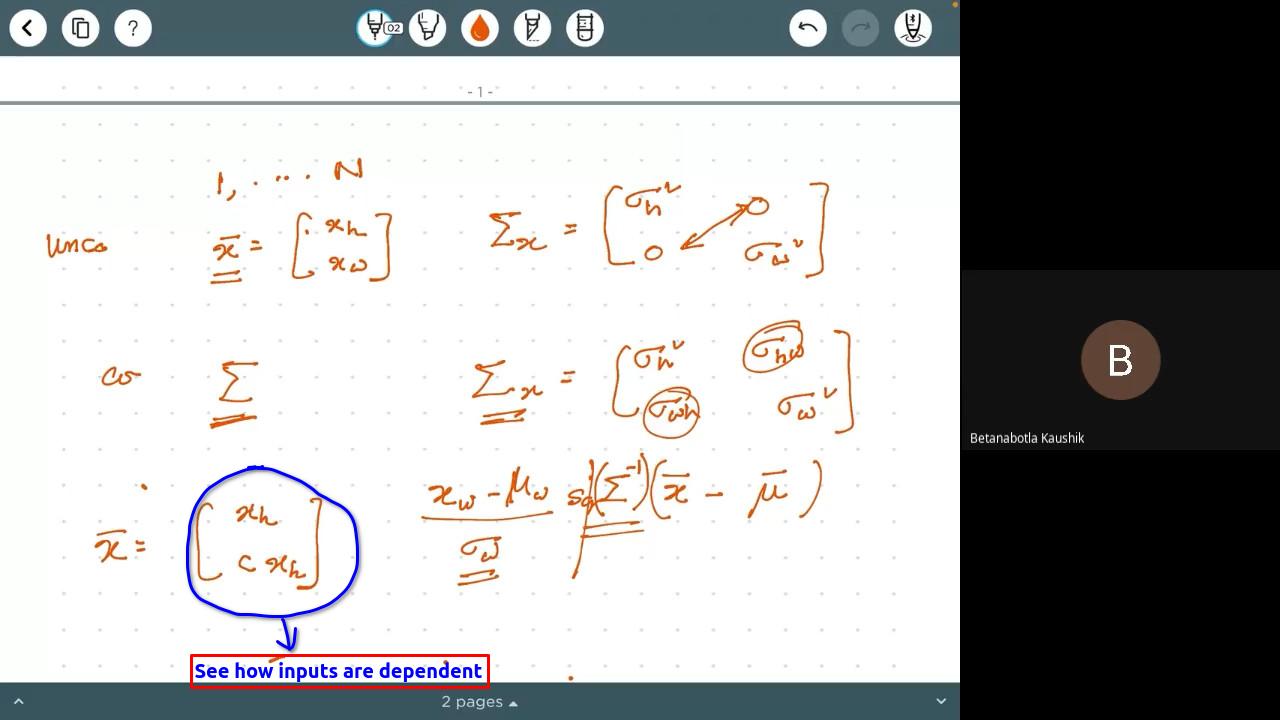 ?
02
- 1 -
1, . ... . N
unco x̄ = [ x_h x_w ] Σ_x = [ σ_h² 0 0 σ_w² ]
co Σ Σ_x = [ σ_h² σ_hw σ_wh σ_w² ]
x̄ = [ x_h c x_h ] x_w - μ_w / σ_w sq(Σ⁻¹)(x̄ - μ̄)
See how inputs are dependent
2 pages
B
Betanabotla Kaushik